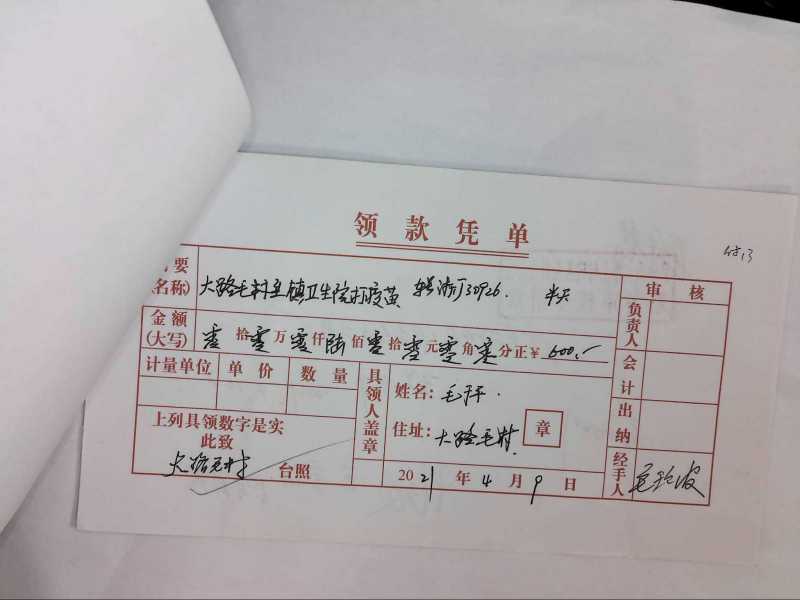 领款凭单
付13
要
名称)
大路毛村至镇卫生院打疫苗
半天
审核
金额
(大写)
零拾零万零仟陆佰零拾零元零角零分正¥600.—
负责人
计量单位 单价 数量
具领人盖章
姓名:毛
会计
住址:大路毛村
章
出纳
上列具领数字是实
此致
大路毛村 台照
2021年4月9日
经手人
毛